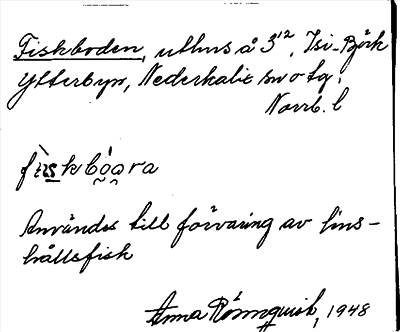 Fiskboden, uthus å 3¹², Isi-Björk
Ytterbyn, Nederkalix sn o tg,
Norrb. l
Användes till förvaring av hus-
hållsfisk
Anna Rönnquist, 1948